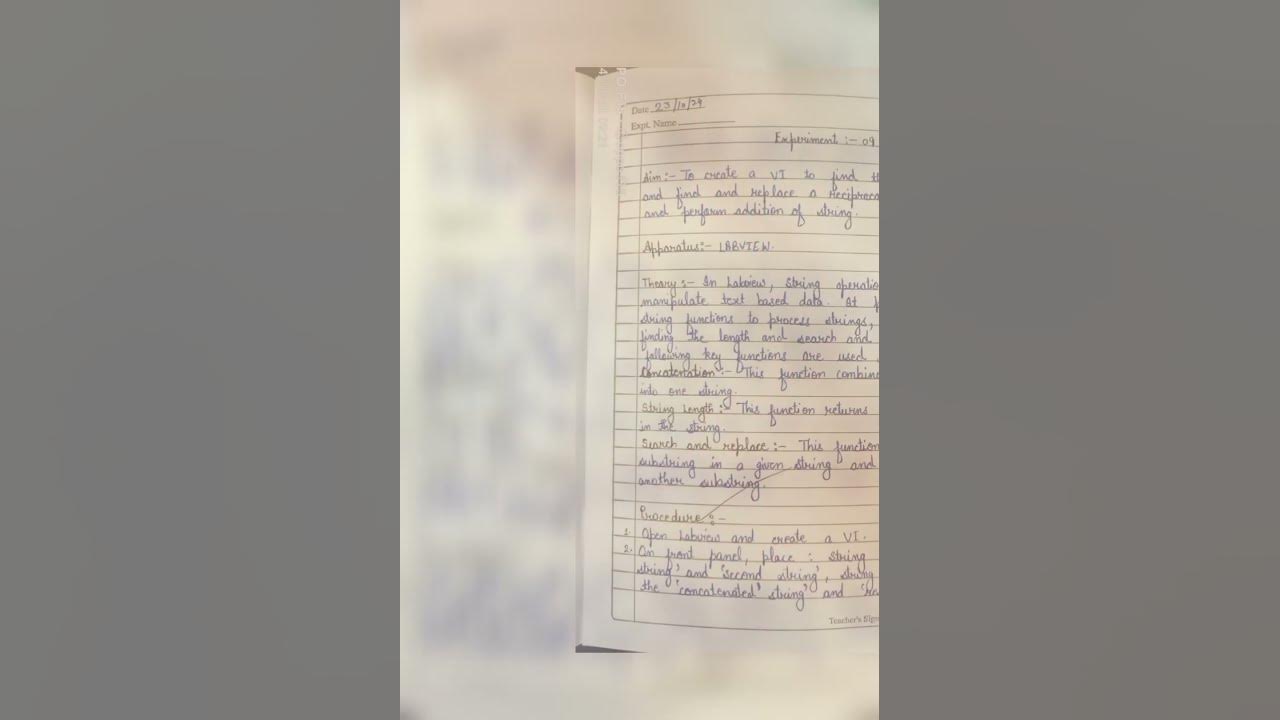 Date 23/10/24
Expt. Name
Experiment :- 09
Aim :- To create a VI to find th
and find and replace a reciproca
and perform addition of string.
Apparatus:- LABVIEW.
Theory :- In Labview, string operatio
manipulate text based data. It
string functions to process strings,
finding the length and search and
following key functions are used
Concatenation :- This function combine
into one string.
String Length :- This function returns
in the string.
Search and replace :- This function
substring in a given string and
another substring.
Procedure :-
1. Open Labview and create a VI.
2. On front panel, place : string
string' and 'second string', string
the 'concatenated string' and 're
Teacher's Sign